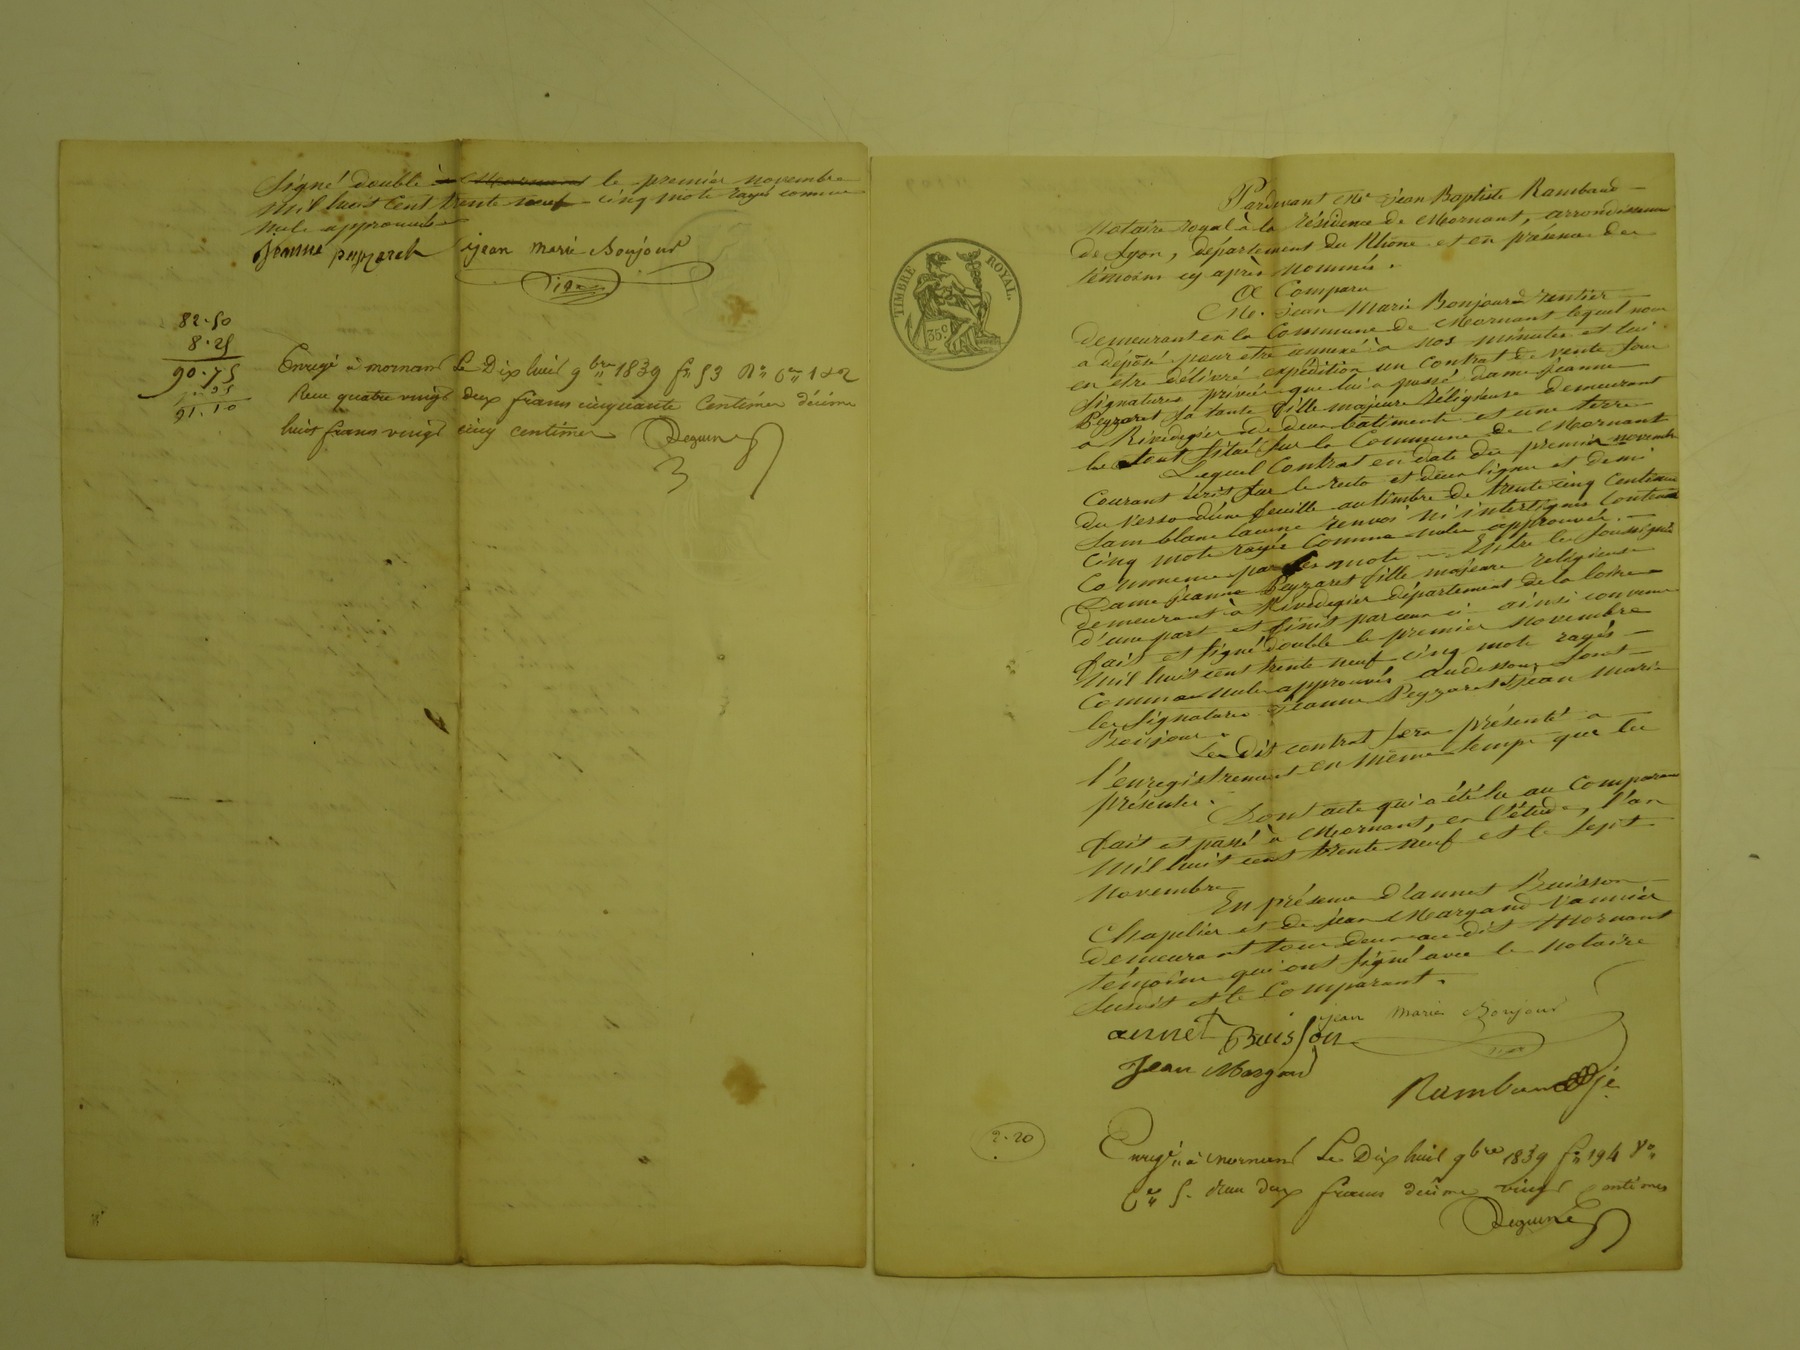 signé double à Mornant le premier novembre
mil huit cent trente neuf cinq mots rayés comme
nuls approuvés
Jeanne peyzaret jean marie Bonjour
82.50
8.25
90.75
91.10
Enregé à mornant Le Dix huit 9bre 1839 f° 53 R° Ces 1 & 2
Reçu quatre vingt deux francs cinquante Centimes décime
huit francs vingt cinq centimes Deguine
3
Pardevant Me Jean Baptiste Rambaud
Notaire royal à la résidence de Mornant, arrondissement
de Lyon, département du Rhône et en présence des
témoins cy après nommés.
A Comparu
Mr. Jean Marie Bonjour rentier
demeurant en la Commune de Mornant lequel nous
a déposé pour etre annexé à nos minutes et lui
en etre délivré expédition un Contrat de vente sous
Signatures privées que lui a passé dame jeanne
Peyzaret sa tante fille majeure Religieuse demeurant
à Rivedegier de deux batiments et une terre
le tout situé sur la Commune de Mornant
Lequel Contrat en date du premier novembre
Courant écrit sur le recto et deux lignes et demi
du verso d'une feuille au timbre de trente cinq Centimes
sans blanc lacune renvoi ni interlignes Contenant
Cinq mots rayés Comme nuls approuvés.
Commence par les mots Entre les soussignés
Dame jeanne Peyzaret fille majeure religieuse
demeurant à Rivedegier département de la loire
d'une part et finit par ceux ci ainsi convenu
fait et signé double le premier novembre
Mil huit cent trente neuf cinq mots rayés
Comme nuls approuvés audessous sont
les signatures jeanne Peyzaret & jean marie
Bonjour.
Le dit contrat sera présenté à
l'enregistrement en même temps que les
présentes.
Dont acte qui a été lu au Comparant
fait et passé à Mornant, en l'étude, l'an
mil huit cent trente neuf et le sept
novembre
En présence d'annet Buisson
Chapelier et de jean Margand Vannier
demeurant tous deux au dit Mornant
témoins qui ont signé avec le notaire
susdit et le Comparant.
jean marie Bonjour
annet Buisson
Jean Margand
Rambaud je
2.20
Enregé à mornant Le Dix huit 9bre 1839 f° 194 V°
Ce 5. Reçu deux francs décime vingt centimes
Deguine
TIMBRE ROYAL.
35 c